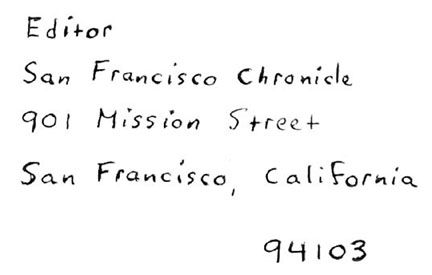 Editor
San Francisco Chronicle
901 Mission Street
San Francisco, California
94103